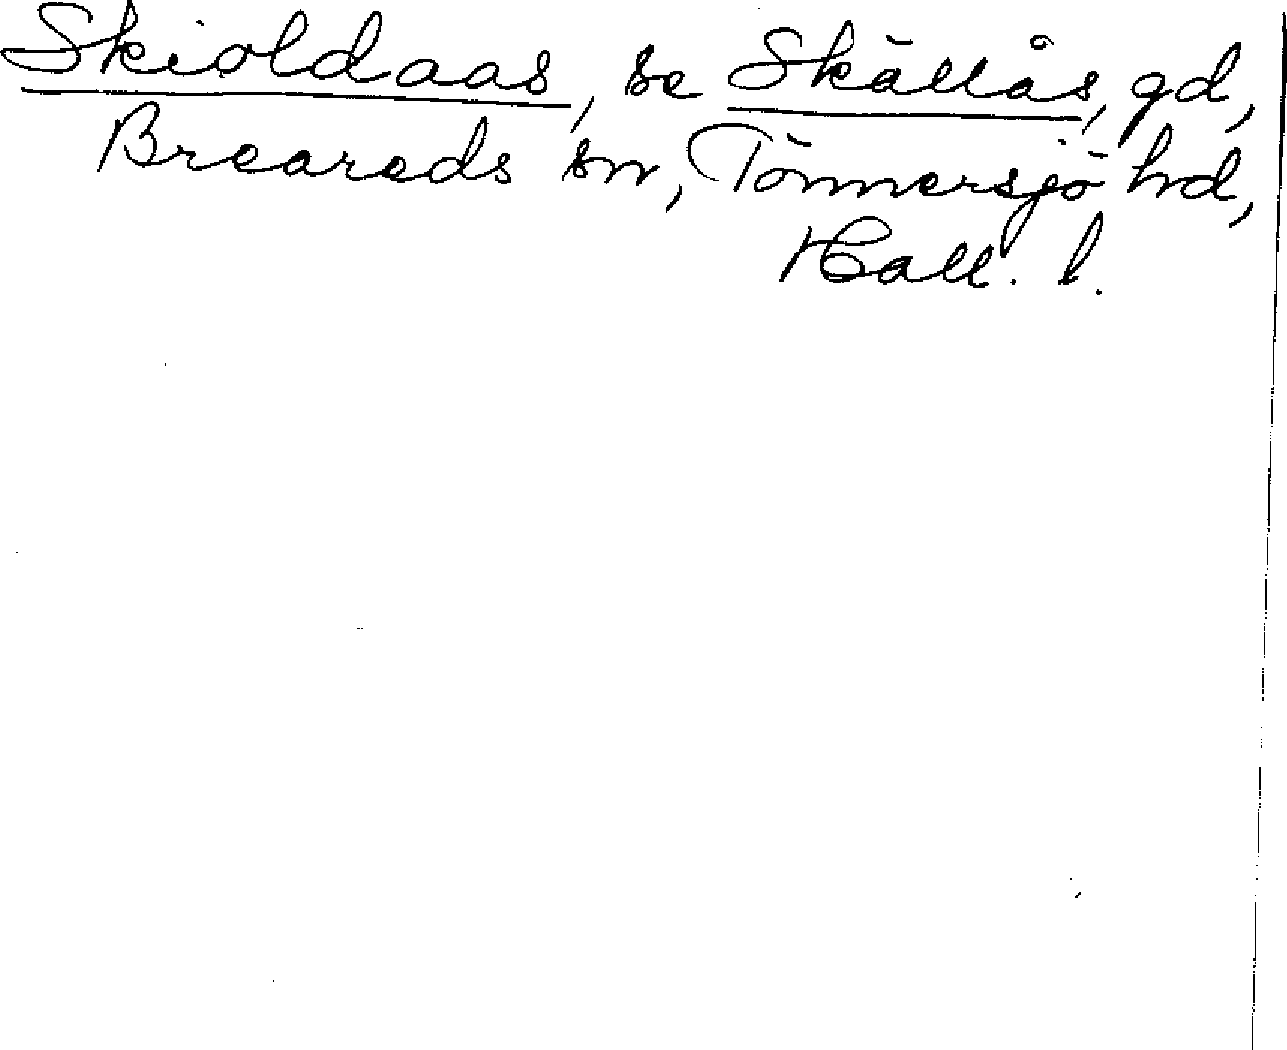 Skioldaas, se Skällås, gd,
Breareds sn, Tönnersjö hd,
Hall. l.